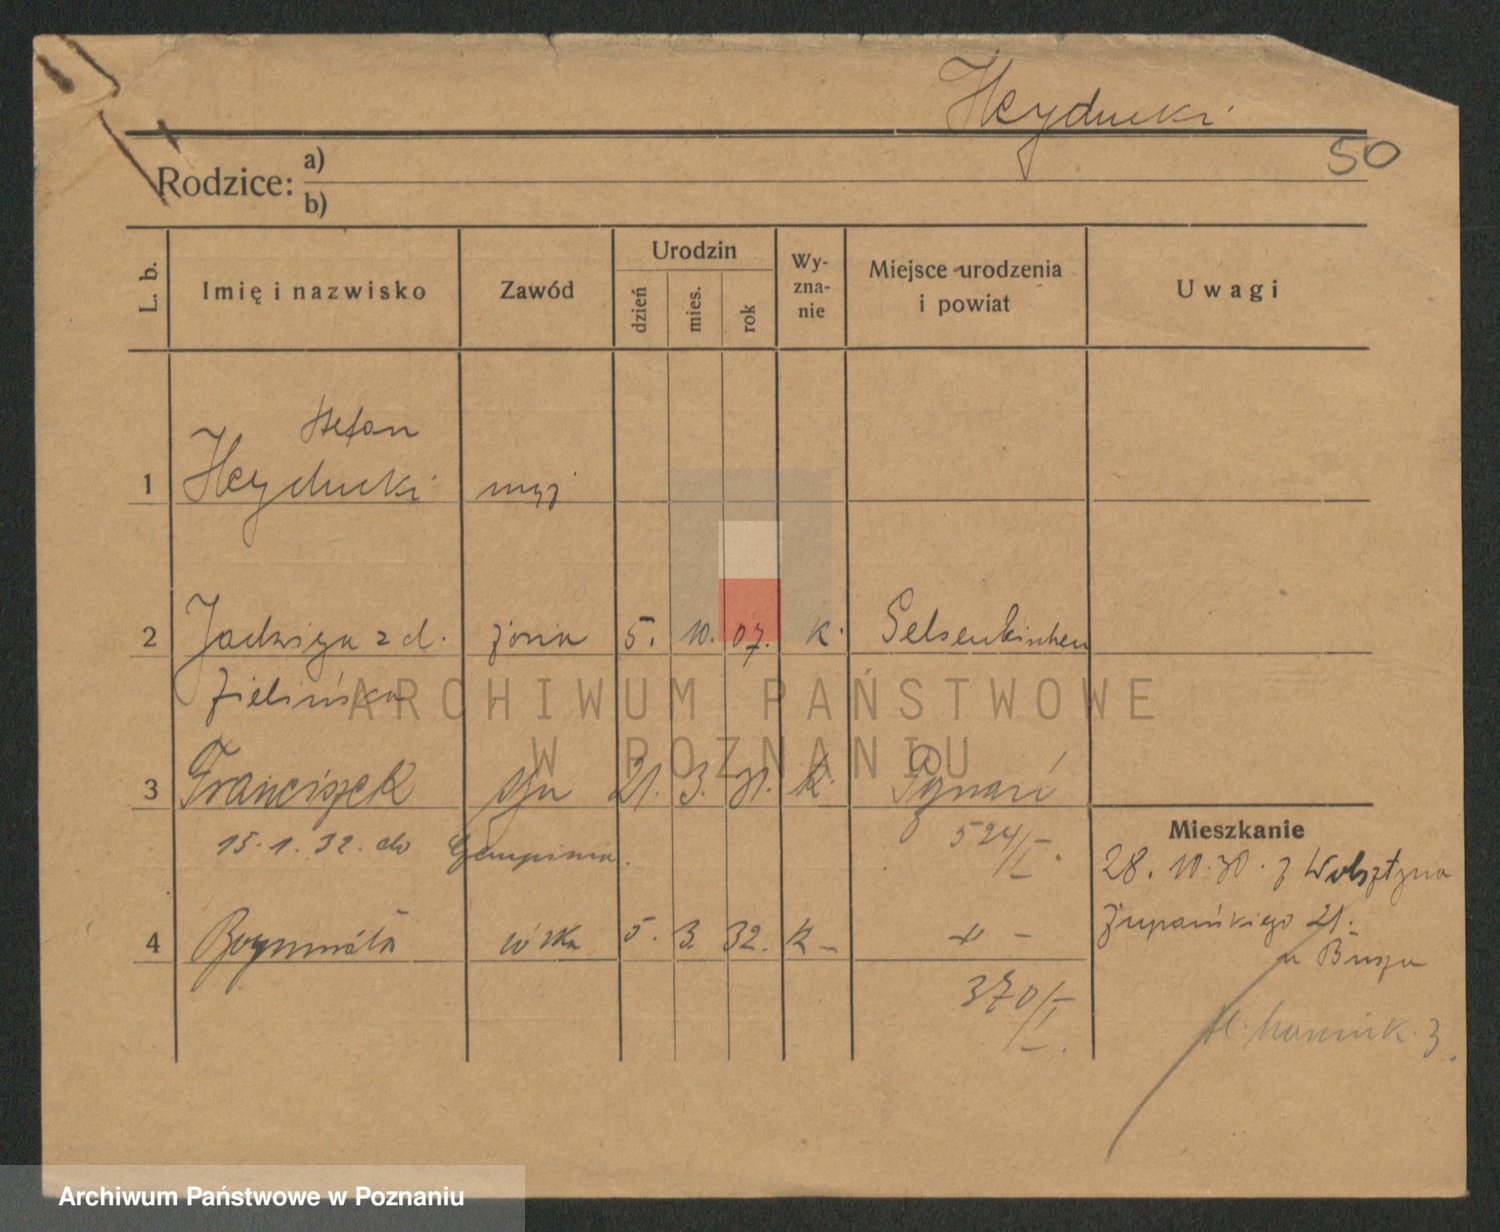 Heyducki
50
Rodzice: a)
b)
L. b. Imię i nazwisko Zawód Urodzin dzień mies. rok Wy-zna-nie Miejsce urodzenia i powiat Uwagi
Stefan
1 Heyducki mąż
2 Jadwiga z d. żona 5. 10. 07. k. Gelsenkirchen
Zielińska
3 Franciszek syn 21. 3. 31. k. Poznań
15. 1. 32. do
524/I.
Mieszkanie
28. 10. 30. z Wolsztyna
Żupańskiego 21.
u
4 córka 5. 3. 32. k -
370/I.
3.
ARCHIWUM PAŃSTWOWE
W POZNANIU
Archiwum Państwowe w Poznaniu